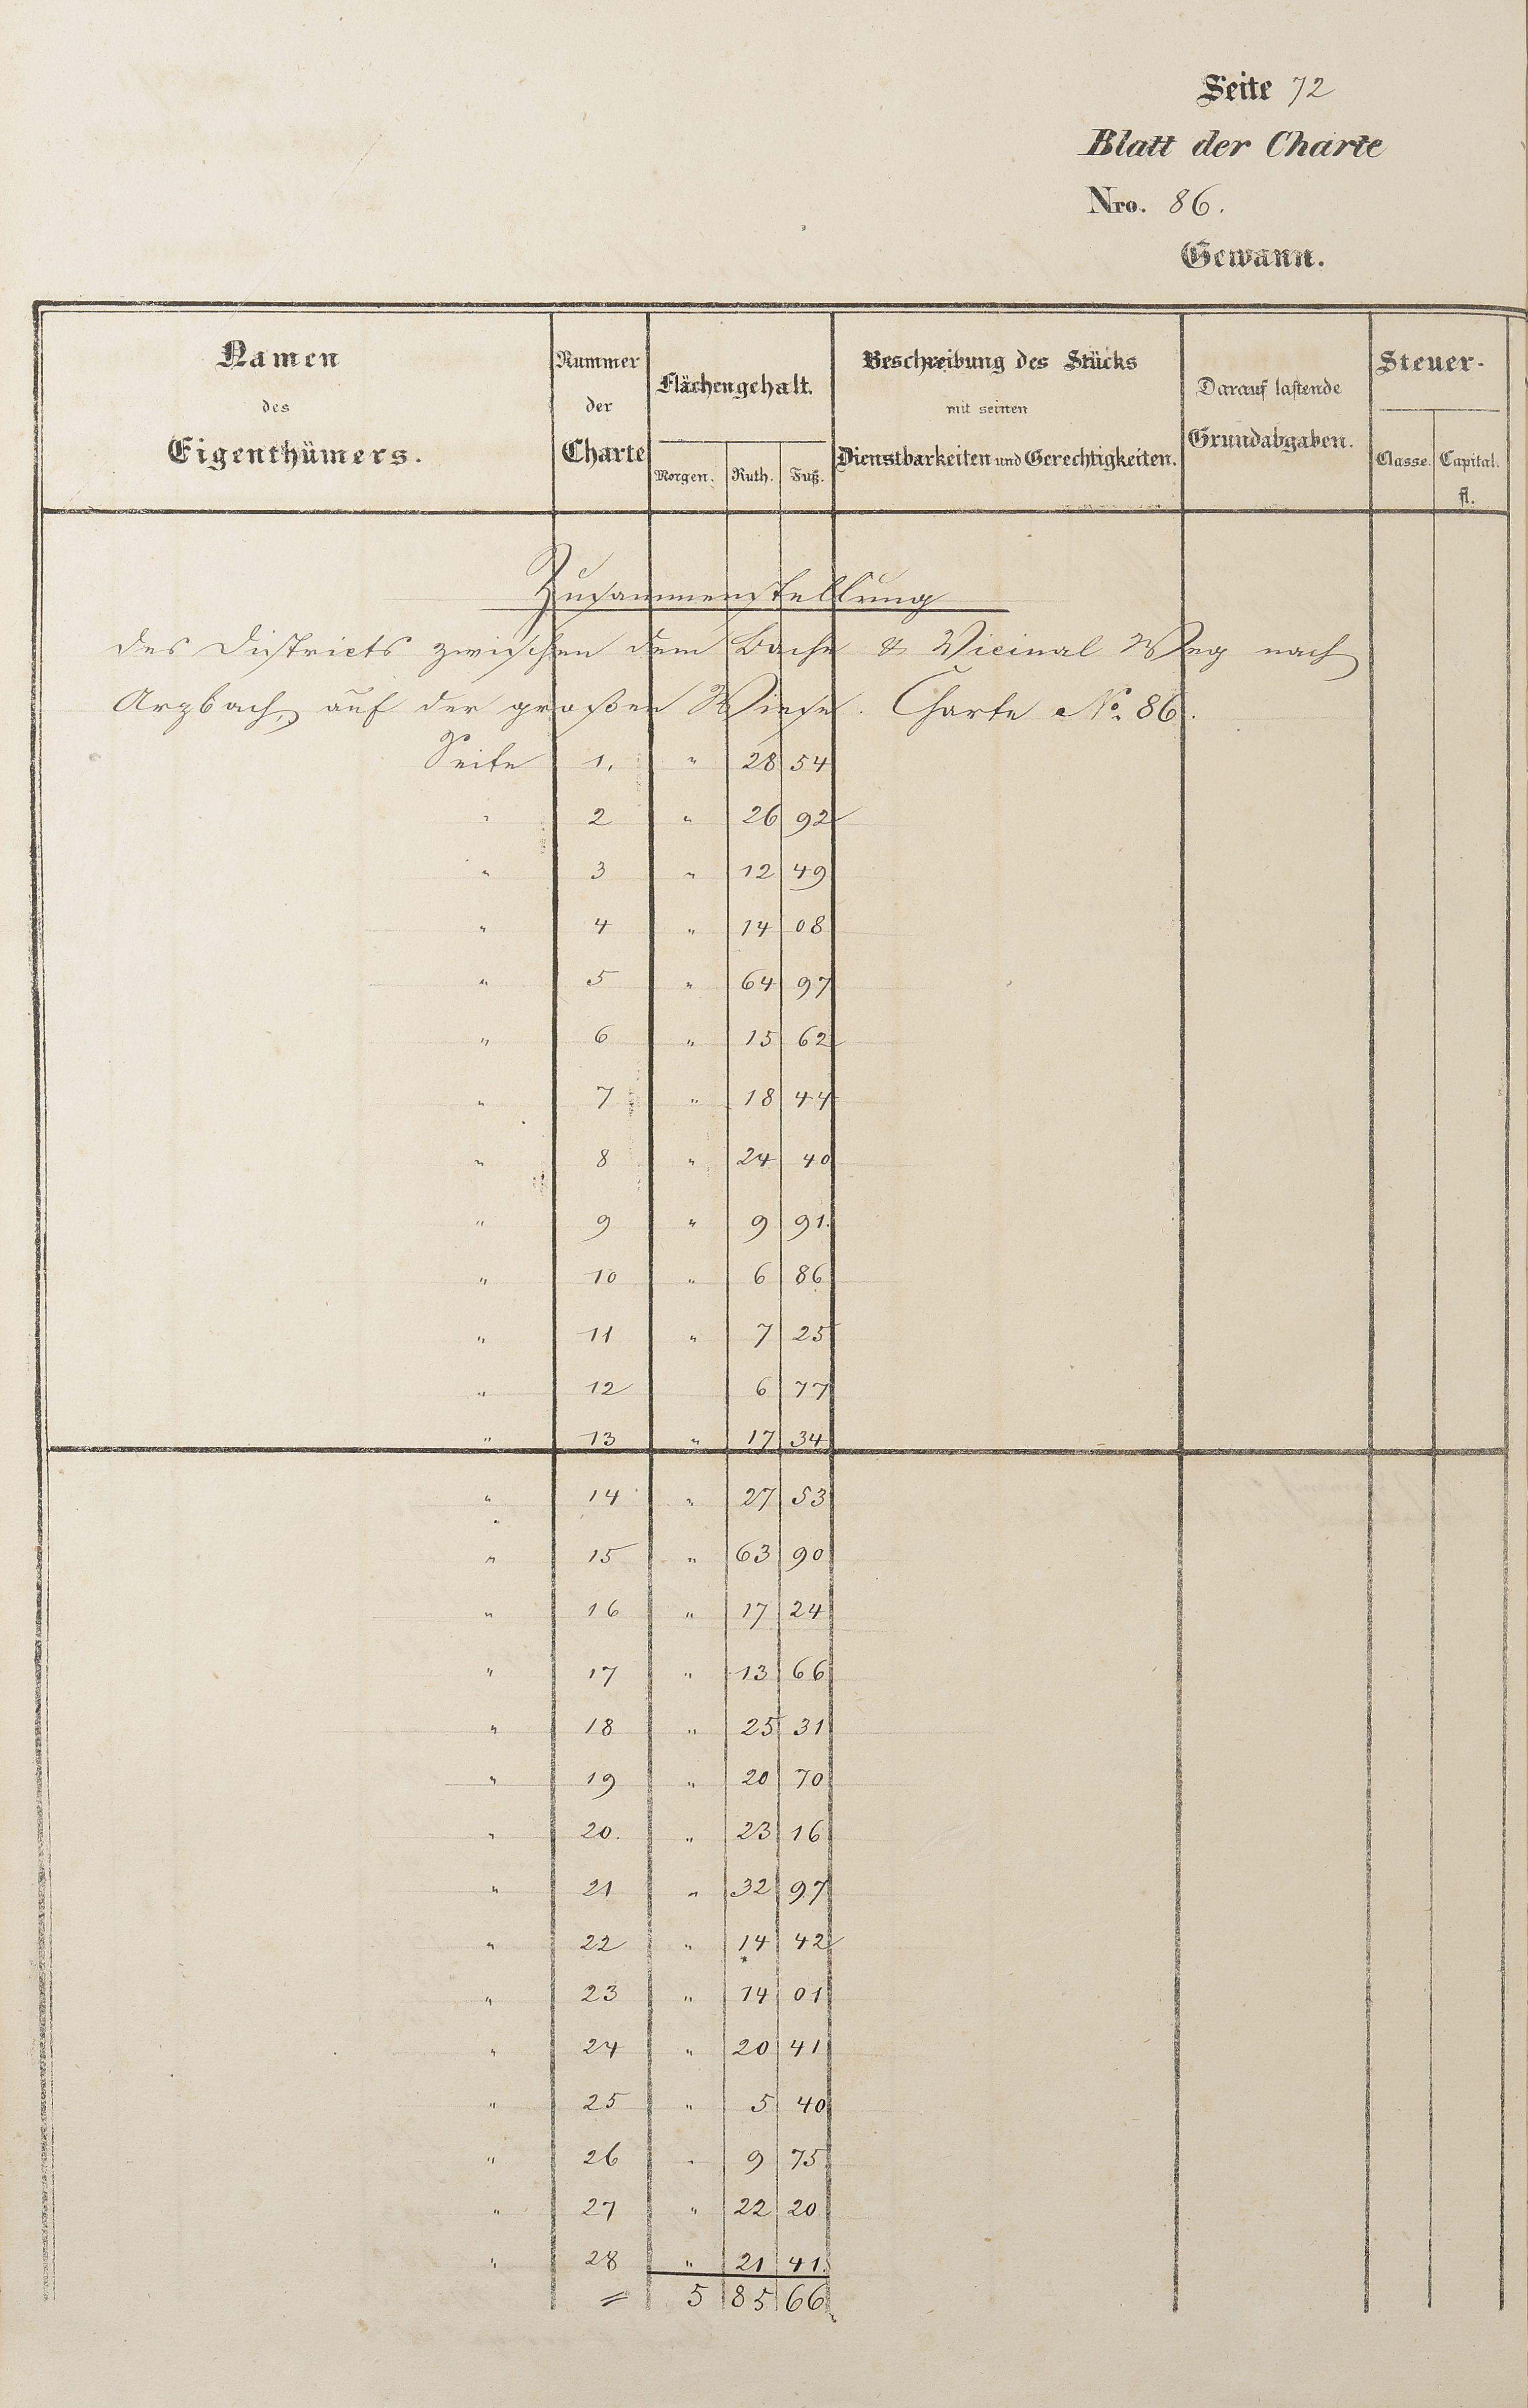 Seite 72
Blatt der Charte
Nro. 86.
Gewann.
Namen des Eigenthümers.
Nummer der Charte
Flächengehalt.
Morgen. Ruth. Fuß.
Beschreibung des Stücks mit seinen Dienstbarkeiten und Gerechtigkeiten.
Darauf lastende Grundabgaben.
Steuer-
Classe. Capital. fl.
Zusammenstellung
des Districts zwischen dem Bache & Vicinal Weg nach
Arzbach, auf der großen Wiese. Charte No. 86.
Seite 1. " 28 54
" 2 " 26 92
" 3 " 12 49
" 4 " 14 08
" 5 " 64 97
" 6 " 15 62
" 7 " 18 44
" 8 " 24 40
" 9 " 9 91.
" 10 " 6 86
" 11 " 7 25
" 12 6 77
" 13 " 17 34
" 14 " 27 53
" 15 " 63 90
" 16 " 17 24
" 17 " 13 66
" 18 " 25 31
" 19 " 20 70
" 20. " 23 16
" 21 " 32 97
" 22 " 14 42
" 23 " 14 01
" 24 " 20 41
" 25 " 5 40
" 26 " 9 75
" 27 " 22 20
" 28 " 21 41.
= 5 85 66